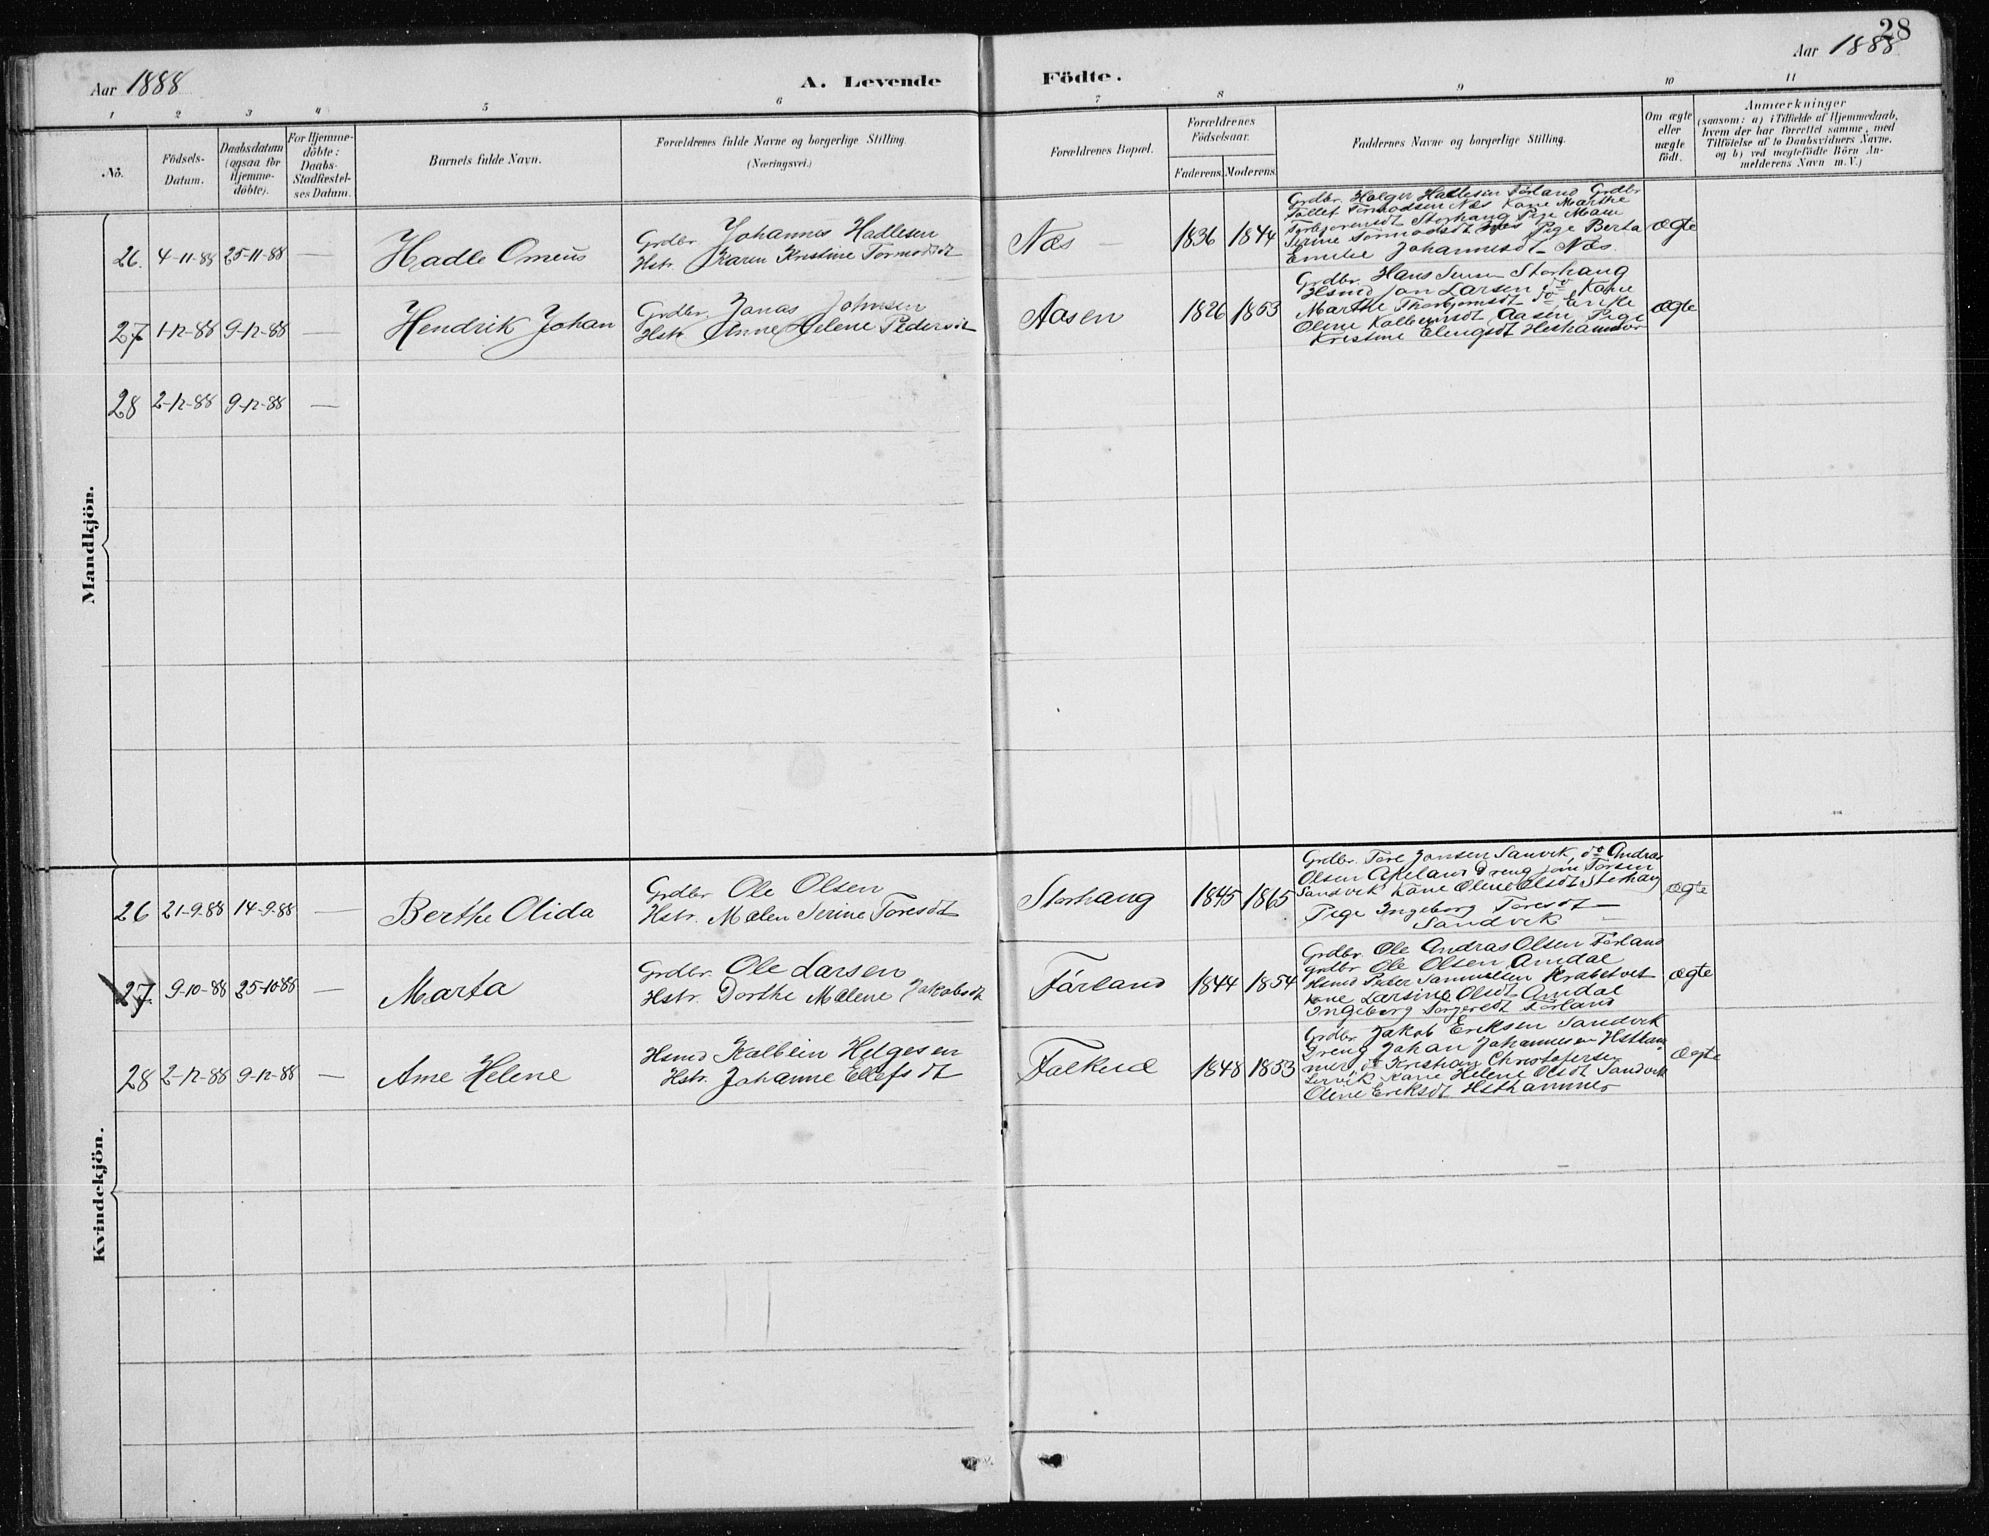 28
Aar 1888
A. Levende
Födte.
Aar 1888
1 2 3 4 5 6 7 8 9 10 11
No.
Födsels-
Datum.
Daabsdatum
(ogsaa for
Hjemme-
döbte).
For Hjemme-
döbte:
Daabs-
Stadfæstel-
ses Datum.
Barnets fulde Navn.
Forældrenes fulde Navne og borgerlige Stilling
(Næringsvei.)
Forældrenes Bopæl.
Forældrenes
Födselsaar.
Faderens. Moderens.
Faddernes Navne og borgerlige Stilling.
Om ægte
eller
uægte
födt.
Anmærkninger
(saasom: a) i Tilfælde af Hjemmedaab,
hvem der har forrettet samme, med
Tilföielse af to Daabsvidners Navne,
og b) ved uægtefödte Börn An-
melderens Navn m. V.)
Mandkjön.
26. 4-11-88 25-11-88 — Hadle Omeus
Grdbr. Johannes Hadlesen
Hstr. Karen Kristine Tormodsdt
Næs — 1836 1844
Grdbr. Holger Hadlesen Førland Grdbr
Tollef Tormodsen Næs Kone Marthe
Torbjørnsdt Storhaug Pige Mari
Serine Tormodsdt Næs Pige Berta
Emelie Johannesdt Næs.
ægte
27 1-12-88 9-12-88 — Hendrik Johan
Grdbr. Jonas Johnsen
Hstr. Anne Helene Pedersdt
Aasen 1826 1853
Grdbr. Hans Jensen Storhaug
Hsmd Jon Larsen do Kone
Marthe Thorbjørnsdt do Enke
Oline Kolbeinsdt Aasen Pige
Kristine Elengsdt Hesthammer
ægte
28 2-12-88 9-12-88 —
Kvindekjön.
26 21-9-88 14-9-88 — Berthe Olida
Grdbr Ole Olsen
Hstr. Malen Serine Toresdt
Storhaug 1845 1865
Grdbr. Tore Jonsen Sanvik, do Andreas
Olsen Økeland Dreng Jone Torsen
Sandvik Kone Oline Olsdt Storhaug
Pige Ingeborg Toresdt
Sandvik —
ægte
27. 9-10-88 25-10-88 Marta
Grdbr. Ole Larsen
Hstr. Dorthe Malene Jakobsdt
Førland 1844 1854
Grdbr. Ole Andras Olsen Førland
grdbr Ole Olsen Amdal
Hsmd Peter Samuelsen Krabetveit
Kone Larsine Olsdt Amdal
Ingeborg Torgersdt Førland
ægte
28 2-12-88 9-12-88 — Ane Helene
Hsmd Kolbein Helgesen
Hstr. Johanne Ellefsdt
Falkeid 1848 1853
Grdbr Jakob Eriksen Sandvik
Dreng Johan Johannesen Hstham
mer, do Kristian Christofersen
Lervik Kone Helene Olsdt Sandvik
Oline Eriksdt Hsthammer
ægte